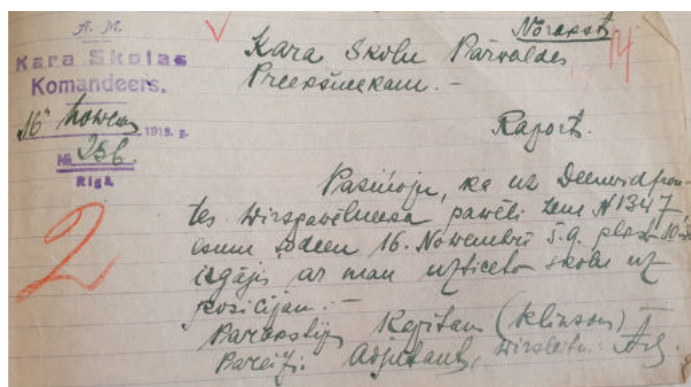 A. M.
Kara Skolas
Komandeers.
"16" Nowem 1919. g.
№ 236.
Rigā.
Noraksts
14
Kara Skolu Pārvaldes
Preekšneekam. –
Raports.
Pasiņoju, ka uz Deenvidfron-
tes wirspawēlneeka pawēli zem № 1347,
esmu šodeen 16. Nowembrī š.g. plkst. 10
izgājis ar man uzticeto skolu uz
pozicijam. –
Parakstijis Kapitans (Klinsons)
Pareizi: Adjutants, wirsleitn.
2